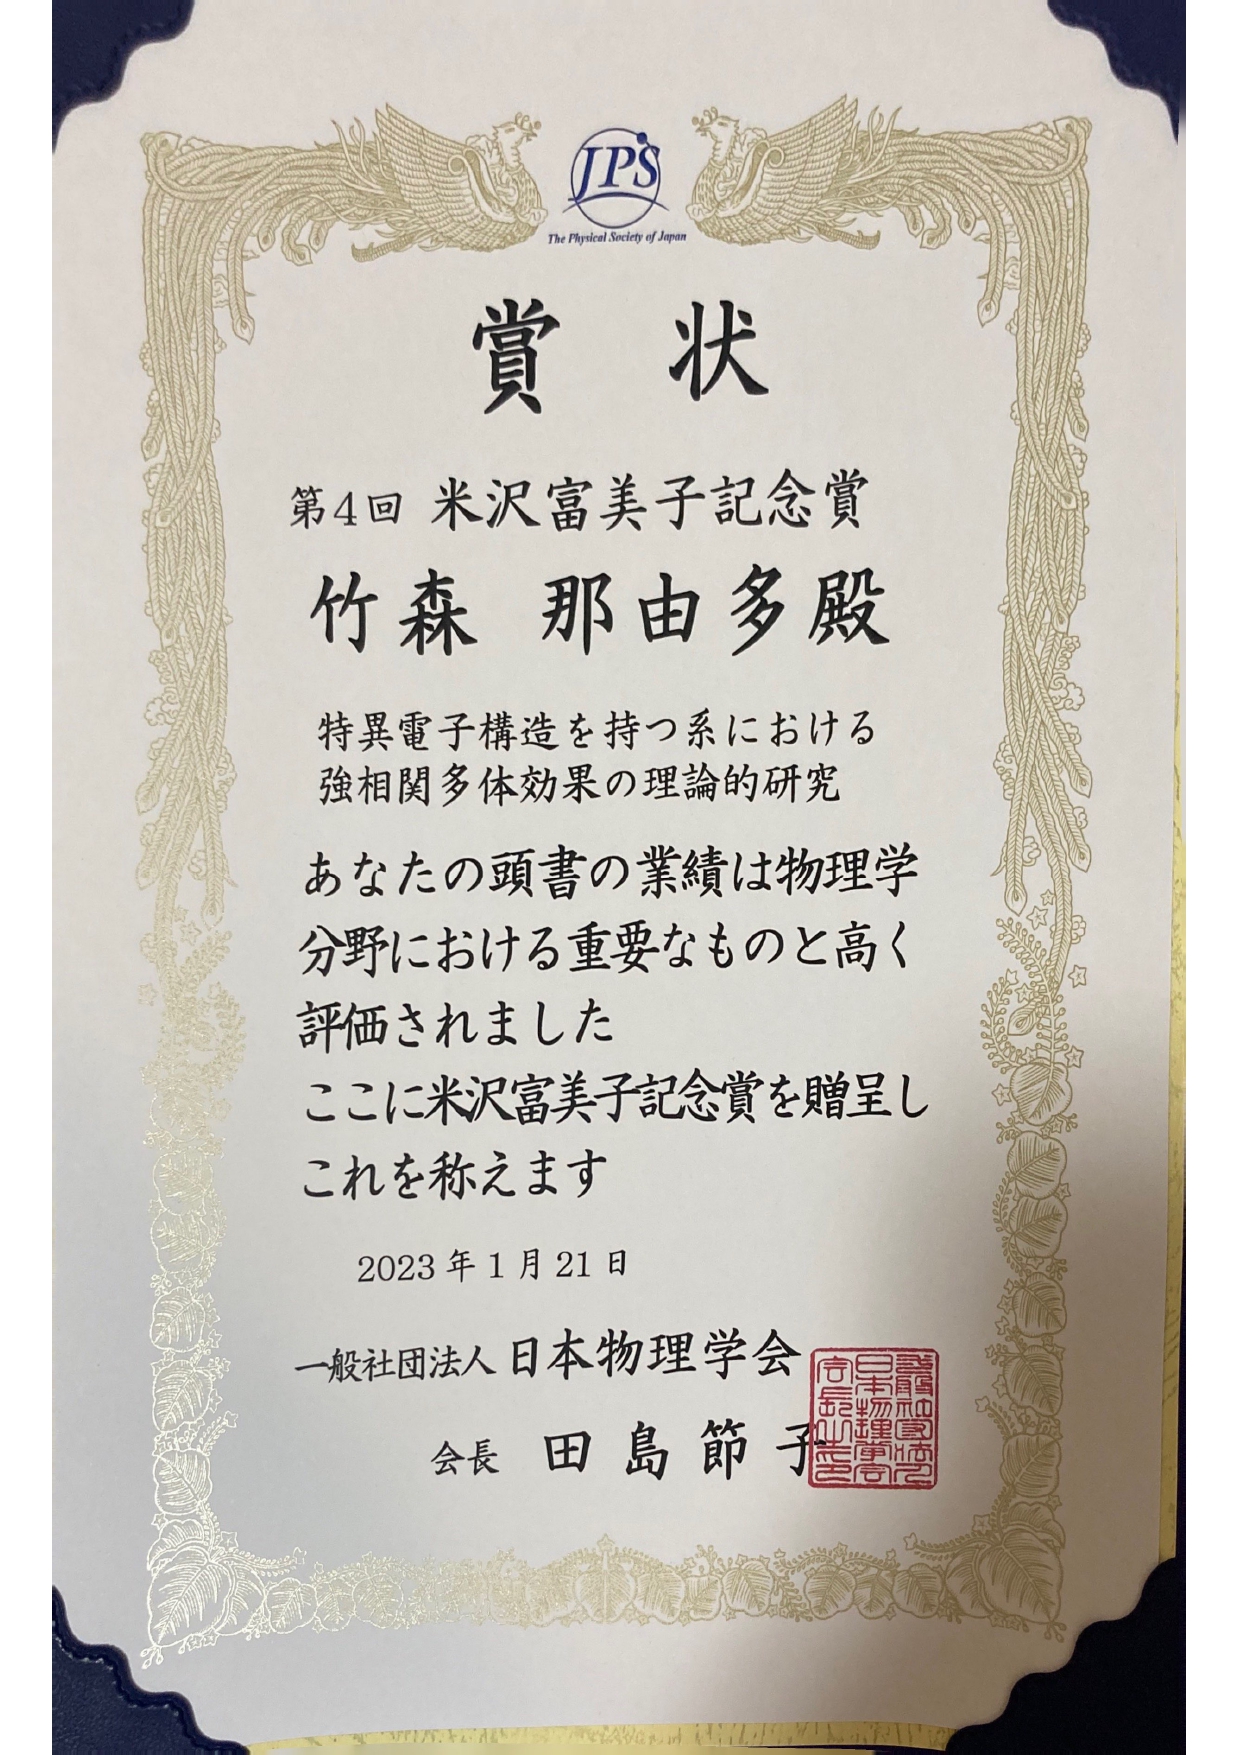 JPS
The Physical Society of Japan
賞 状
第4回 米沢富美子記念賞
竹森 那由多殿
特異電子構造を持つ系における
強相関多体効果の理論的研究
あなたの頭書の業績は物理学
分野における重要なものと高く
評価されました
ここに米沢富美子記念賞を贈呈し
これを称えます
2023年1月21日
一般社団法人日本物理学会
会長 田島節子